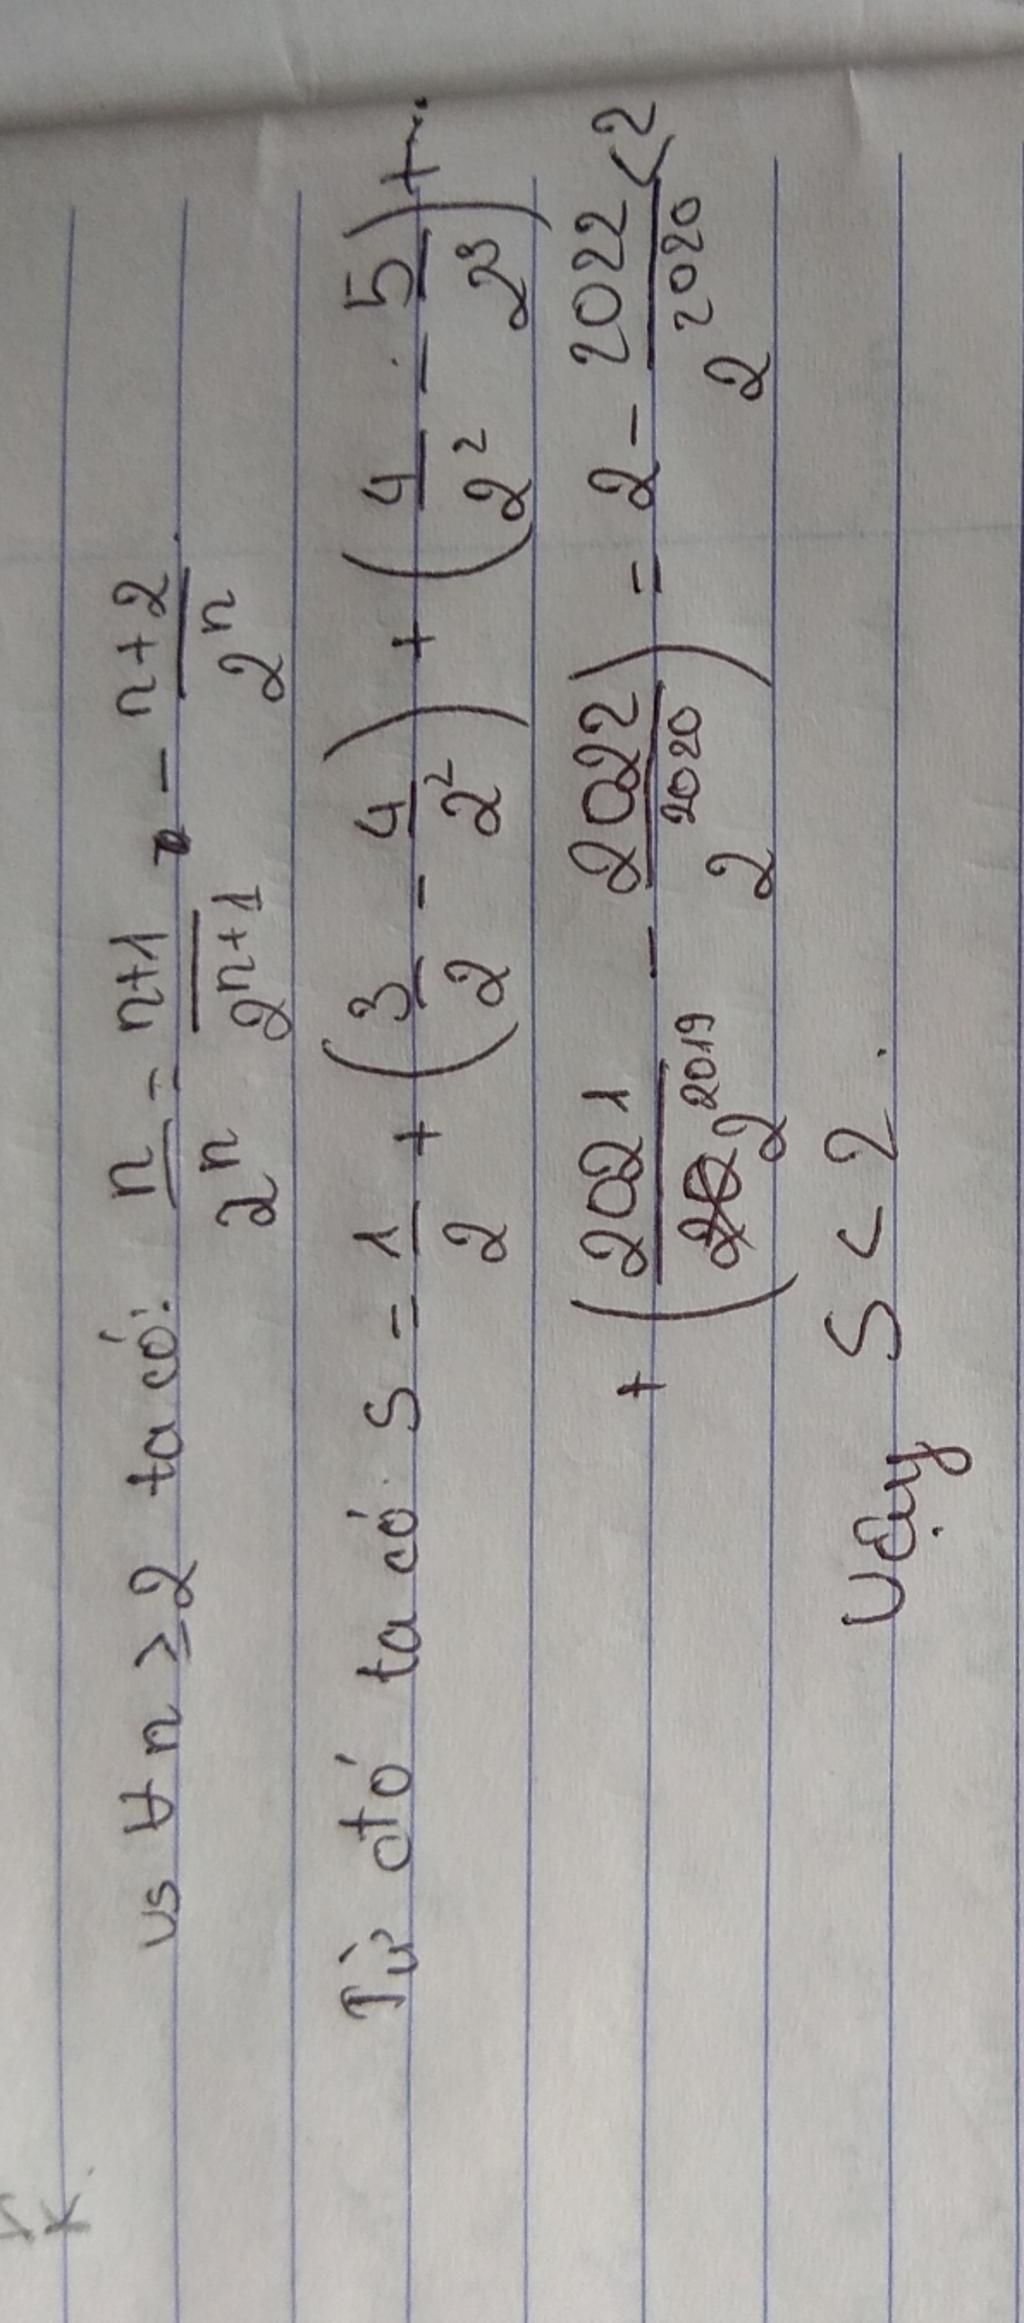 vs ∀ n ≥ 2 ta có: n/2^n = n+1/2^{n+1} - n+2/2^n
Từ đó ta có S = 1/2 + (3/2 - 4/2^2) + (4/2^2 - 5/2^3) + ...
+ (2021/2^2019 - 2022/2^2020) = 2 - 2022/2^2020 < 2
Vậy S < 2.